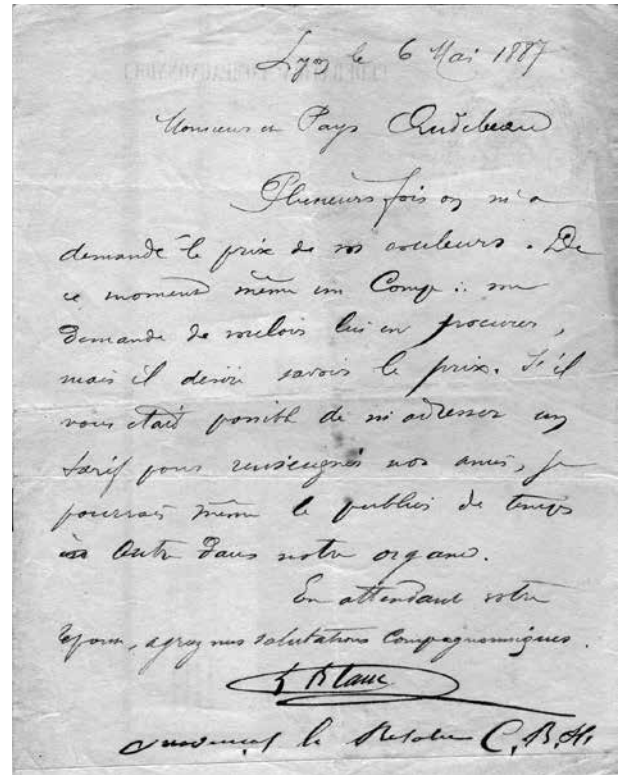 Lyon le 6 Mai 1887
Monsieur et Pays Audebeau
Plusieurs fois on m'a
demandé le prix de vos couleurs. De
ce moment même un Comp∴ me
demande de vouloir lui en procurer,
mais il désire savoir le prix. S'il
vous était possible de m'adresser un
tarif pour renseigner nos amis, je
pourrais même le publier de temps
en autre dans notre organe.
En attendant votre
réponse, agréez mes salutations Compagnonniques.
Blanc
le Résolu C. B. H.